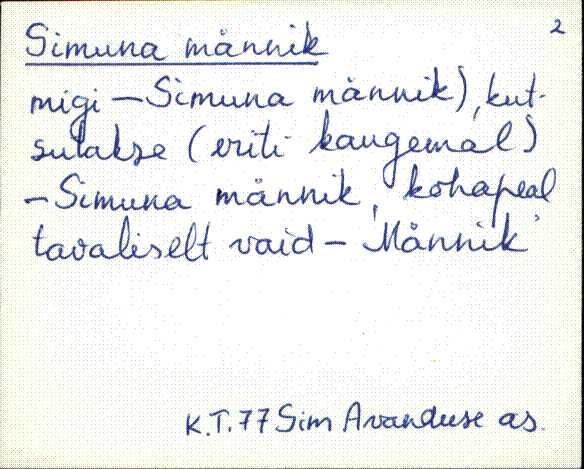 2
Simuna männik
migi – Simuna männik), kut-
sutakse (eriti kaugemal)
– Simuna männik, kohapeal
tavaliselt vaid – Männik
K.T. 77 Sim Avanduse as.